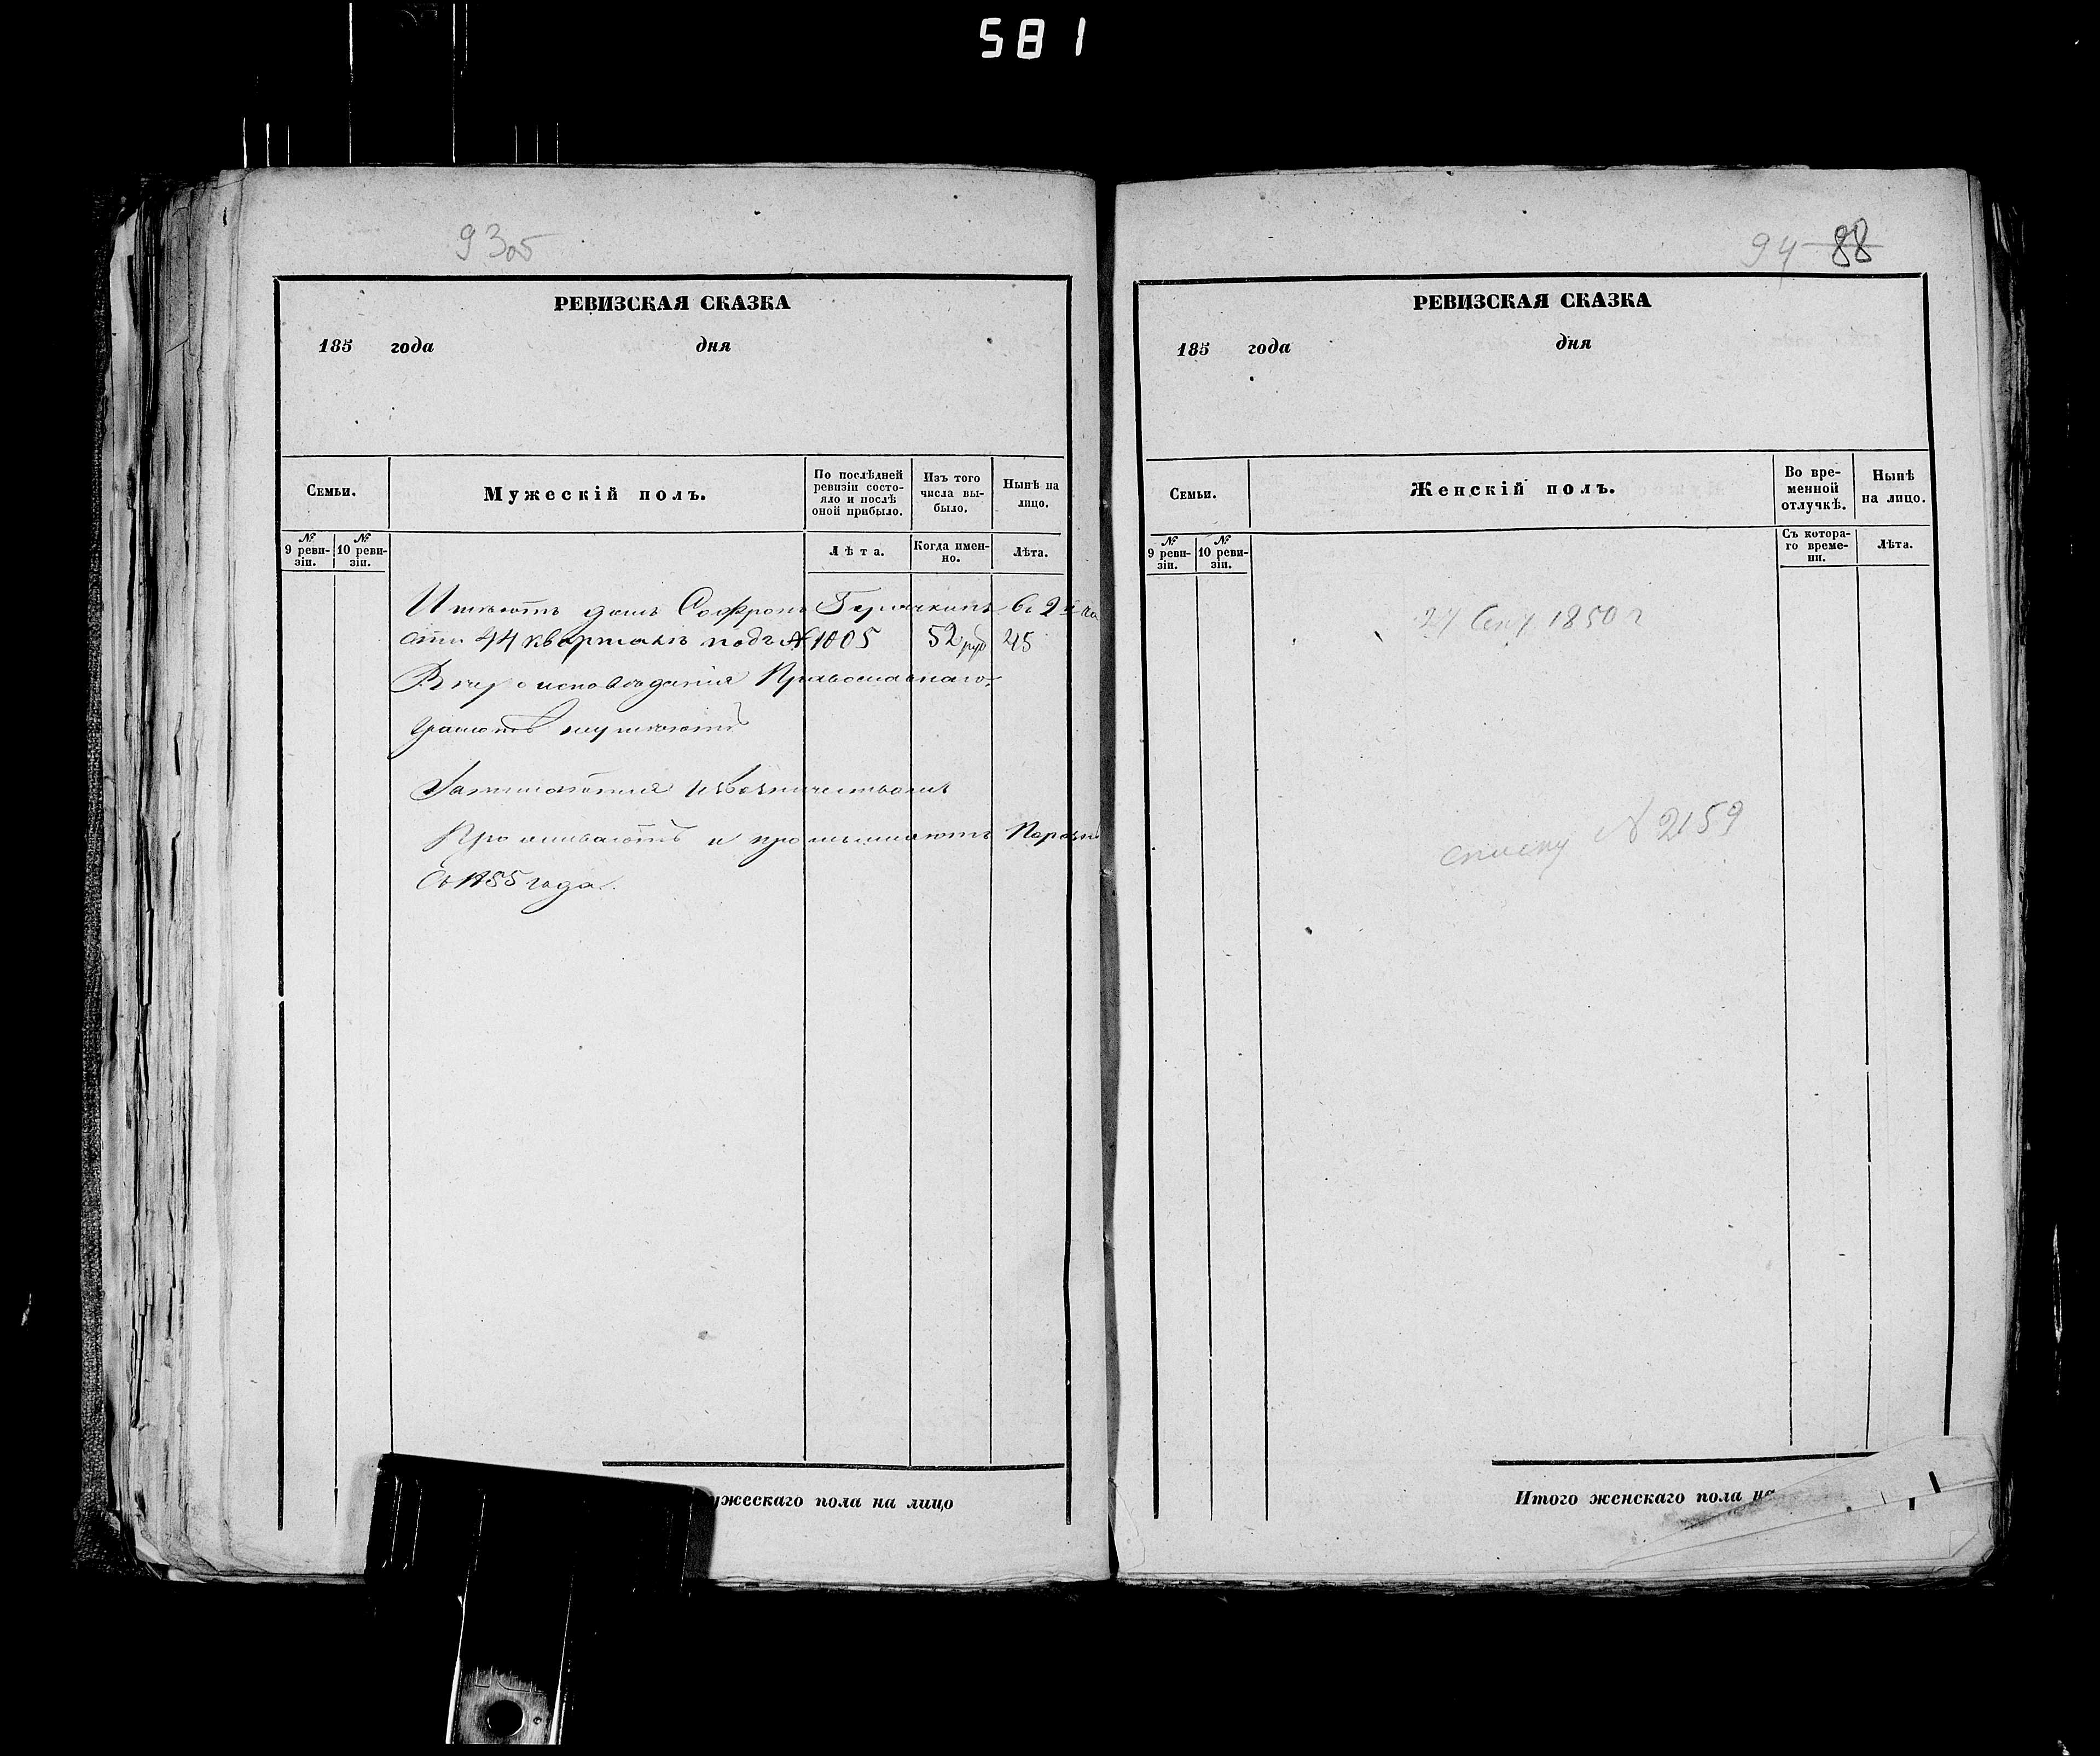 581
93об
РЕВИЗСКАЯ СКАЗКА
185 года дня
Семьи.
Мужескій полъ.
По послѣдней ревизіи состояло и послѣ оной прибыло.
Изъ того числа выбыло.
Нынѣ на лицо.
№ 9 ревизіи.
№ 10 ревизіи.
Лѣта.
Когда именно.
Лѣта.
Имѣютъ домъ Софронъ во 2й ча
сти 44 кварталѣ подъ № 1005 52 руб 45
Вѣроисповѣданія Православнаго
грамотѣ неумѣютъ
Занимаются извозничествомъ
Проживаютъ и промышляютъ
Съ 1855 года.
ужескаго пола на лицо
94 88
РЕВИЗСКАЯ СКАЗКА
185 года дня
Семьи.
Женскій полъ.
Во временной отлучкѣ.
Нынѣ на лицо.
№ 9 ревизіи.
№ 10 ревизіи.
Съ котораго времени.
Лѣта.
1850 г
списку № 2159
Итого женскаго пола на